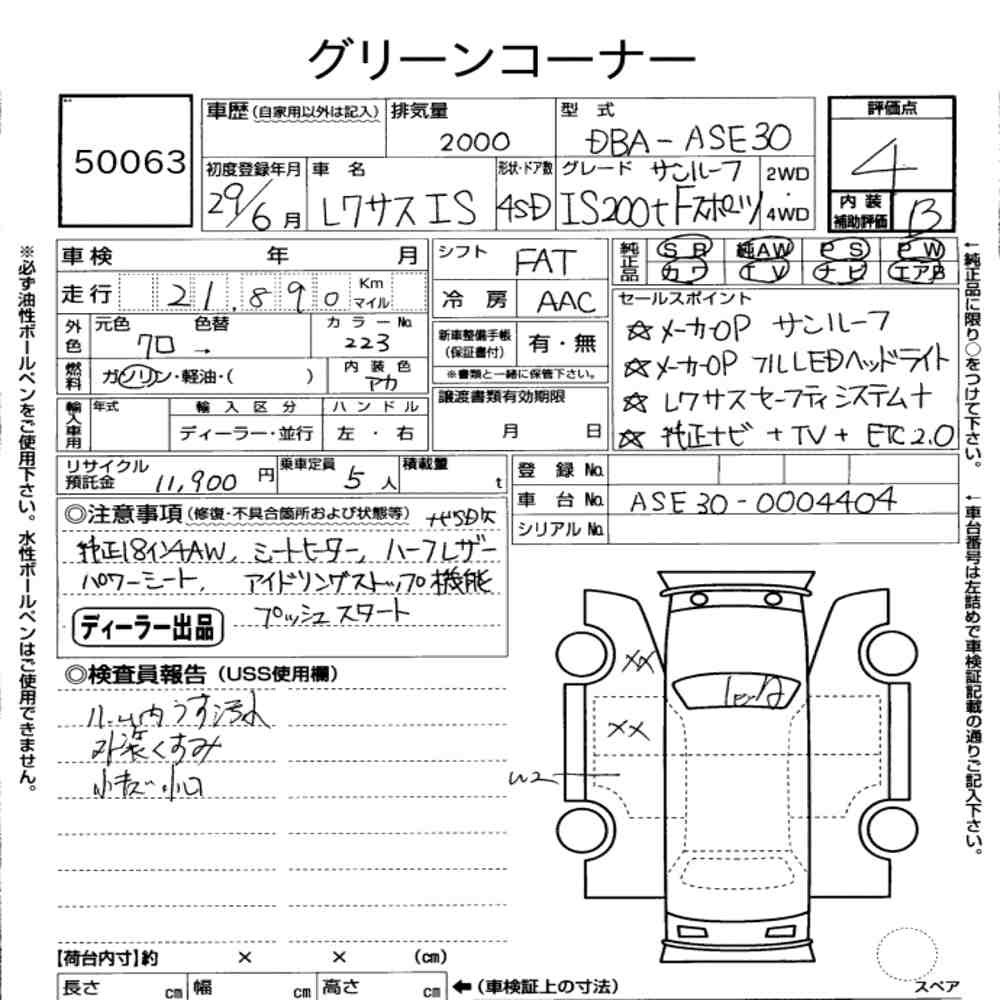 グリーンコーナー
50063
車歴(自家用以外は記入)
排気量
2000
型 式
DBA-ASE30
評価点
4
初度登録年月
29/6月
車 名
レクサスIS
形状・ドア数
4SD
グレード サンルーフ
IS200t Fスポーツ
2WD
4WD
内 装
補助評価
B
車検 年 月
走行 21,890 Km
マイル
シフト FAT
冷 房 AAC
純正品
SR 純AW PS PW
カワ TV ナビ エアB
外色
元色 色替
クロ →
カラーNo.
223
燃料
ガソリン・軽油・( )
内 装 色
アカ
新車整備手帳
(保証書付)
有・無
※書類と一緒に保管下さい。
セールスポイント
☆メーカOP サンルーフ
☆メーカOP フルLEDヘッドライト
☆レクサスセーフティシステム+
☆純正ナビ+TV+ETC2.0
輸入車用
年式
輸 入 区 分
ディーラー・並行
ハ ン ド ル
左 ・ 右
譲渡書類有効期限
月 日
リサイクル
預託金 11,900 円
乗車定員 5 人
積載量 t
登 録 No.
車 台 No. ASE30-0004404
シリアルNo.
◎注意事項(修復・不具合箇所および状態等)
純正18インチAW, シートヒーター, ハーフレザー
パワーシート, アイドリングストップ機能
プッシュスタート
ディーラー出品
◎検査員報告(USS使用欄)
ルーム内うす汚れ
外装くすみ
小キズ・小凹
XX
XX
W2
【荷台内寸】約 × × (cm)
長さ cm 幅 cm 高さ cm
←(車検証上の寸法)
スペア
※必ず油性ボールペンをご使用下さい。水性ボールペンはご使用できません。
←純正品に限り○をつけて下さい。
←車台番号は左詰めで車検証記載の通りご記入下さい。